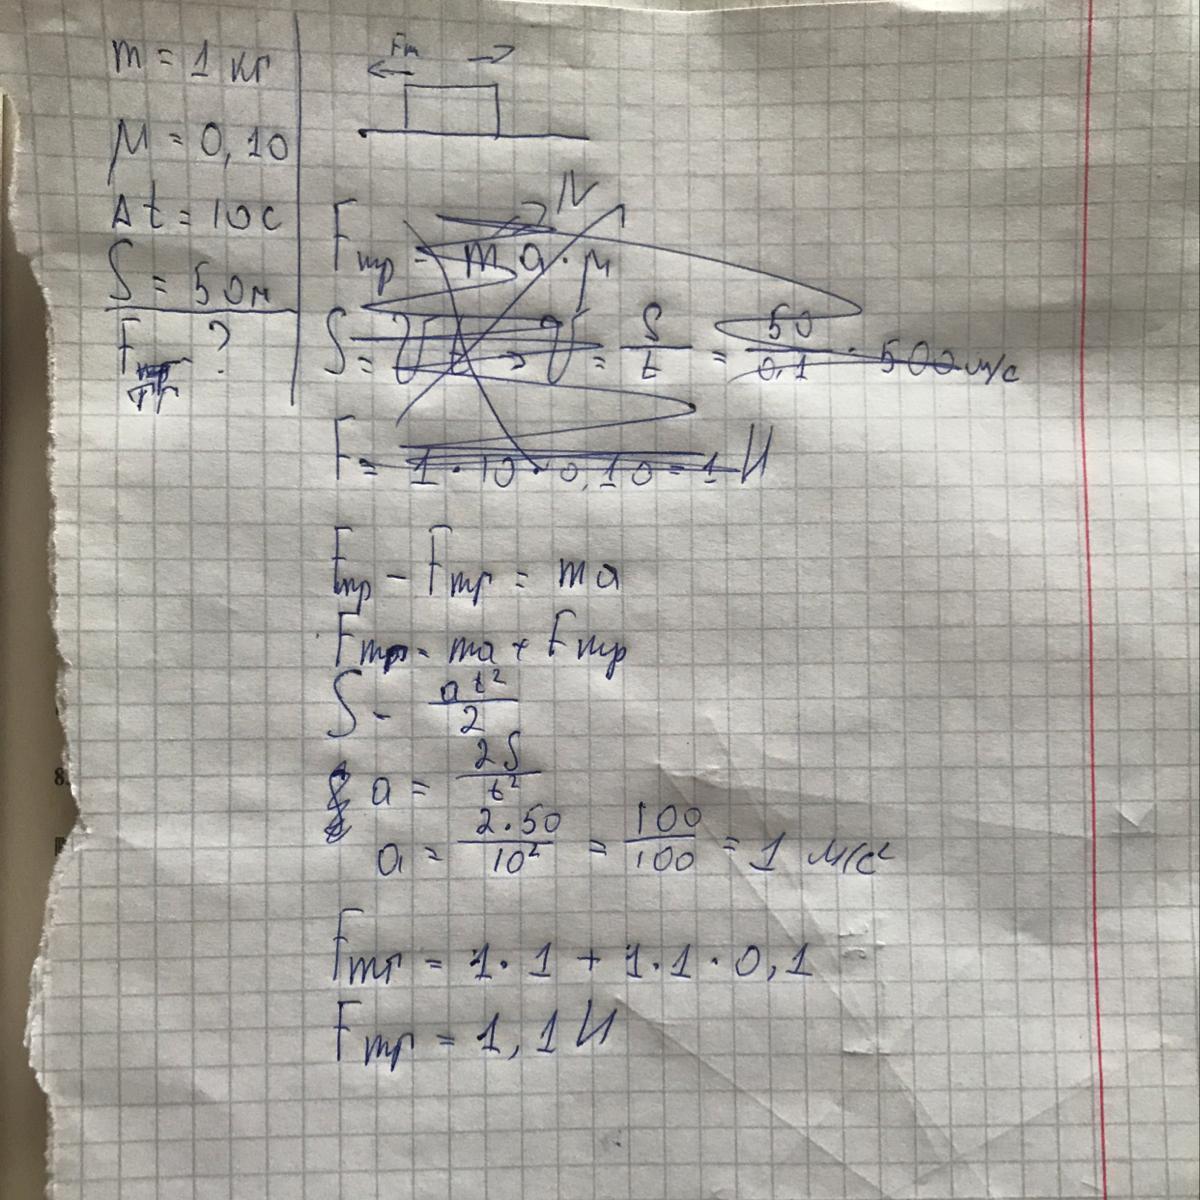 m = 1 кг
μ = 0,10
Δt = 10с
S = 50м
F ?
Fm
N
Fтр = ma · μ
S = υt → υ = S/t = 50/0,1 · 500 м/с
F = 1 · 10 · 0,10 = 1 Н
Fтр - Fтр = ma
Fтр = ma + Fтр
S - at²/2
a = 2S/t²
a = 2·50/10² = 100/100 = 1 м/с²
Fтр = 1·1 + 1·1·0,1
Fтр = 1,1 Н
8.